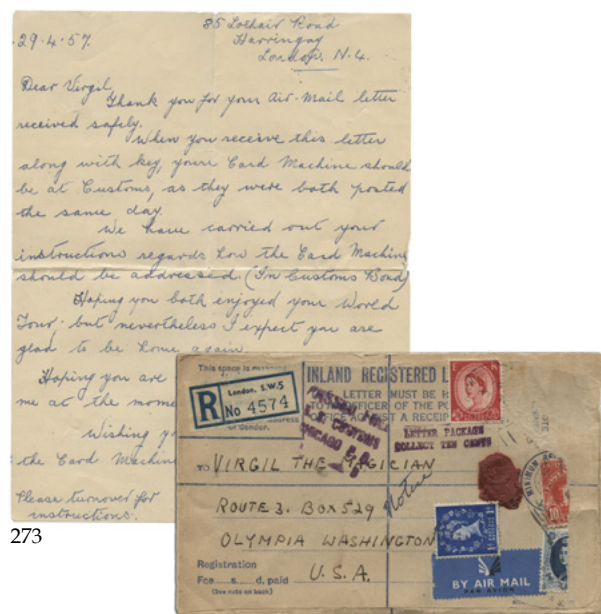 85 Lothair Road
Harringay
London. N.4.
29.4.57.
Dear Virgil,
Thank you for your Air-Mail letter
received safely.
When you receive this letter
along with key, youre Card Machine should
be at Customs, as they were both posted
the same day.
We have carried out your
instructions regards how the Card Machine
should be addressed (In Customs Bond)
Hoping you both enjoyed your World
Tour, but nevertheless I expect you are
glad to be home again.
Hoping you are
me at the mome
Wishing y
the Card Machine
Please turnover for
instructions.
273
This space is
R
London, S.W.5
No 4574
address
or sender.
INLAND REGISTERED L
LETTER MUST BE H
TO AN OFFICER OF THE PO
OFFICE AGAINST A RECEIP
PASSED FREE
U.S. CUSTOMS
CHICAGO
LETTER PACKAGE
COLLECT TEN CENTS
MINIMUM
TO VIRGIL THE MAGICIAN
Notice
ROUTE 3. BOX 529
OLYMPIA WASHINGTON
U.S.A.
Registration
Fee s. d. paid
(See note on back)
BY AIR MAIL
PAR AVION